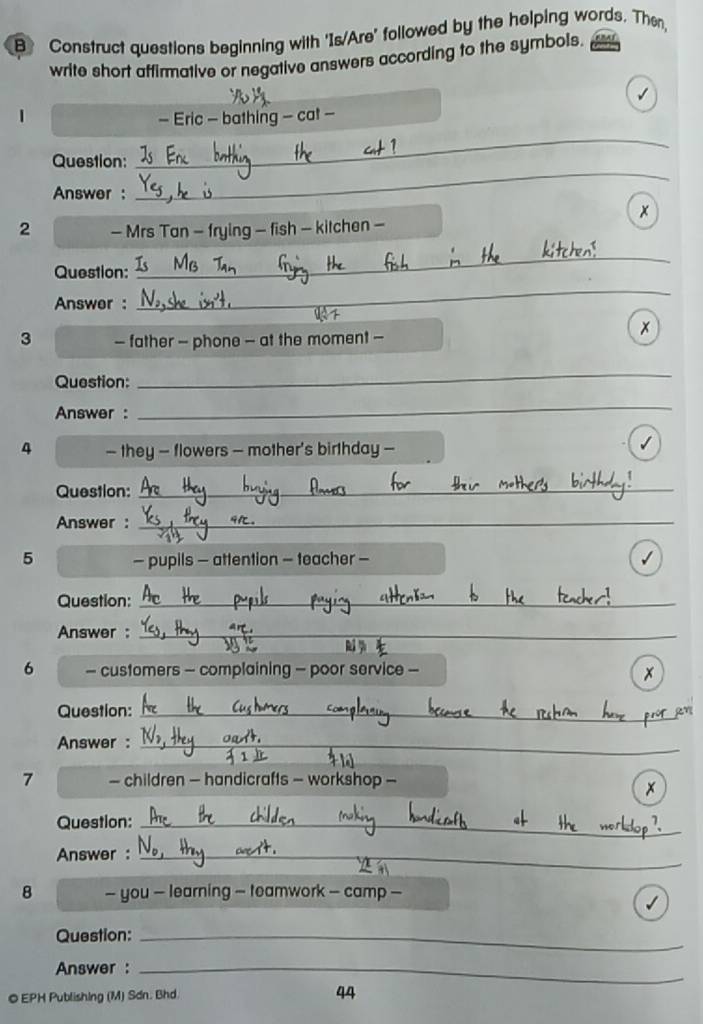 B Construct questions beginning with 'Is/Are' followed by the helping words. Then,
write short affirmative or negative answers according to the symbols.
1 – Eric – bathing – cat – ✓
Question: Is Eric bathing the cat?
Answer : Yes, he is
2 – Mrs Tan – frying – fish – kitchen – ✗
Question: Is Mrs Tan frying the fish in the kitchen?
Answer : No, she isn't.
3 – father – phone – at the moment – ✗
Question:
Answer :
4 – they – flowers – mother's birthday – ✓
Question: Are they buying flowers for their mother's birthday?
Answer : Yes, they are.
5 – pupils – attention – teacher – ✓
Question: Are the pupils paying attention to the teacher?
Answer : Yes, they are.
6 – customers – complaining – poor service – ✗
Question: Are the complaining because the have poor
Answer : No, they
手工业
7 – children – handicrafts – workshop – ✗
Question: Are the making handicrafts at the
Answer : No, they
8 – you – learning – teamwork – camp – ✓
Question:
Answer :
© EPH Publishing (M) Sdn. Bhd. 44